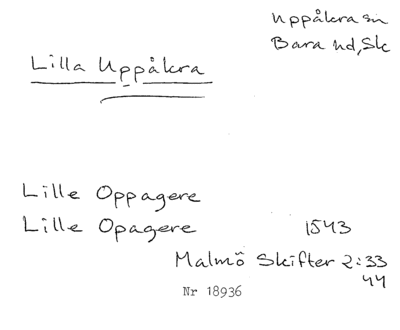 Uppåkra sn
Bara hd, Sk
Lilla Uppåkra
Lille Oppagere
Lille Opagere 1543
Malmö Skifter 2:33
44
Nr 18936